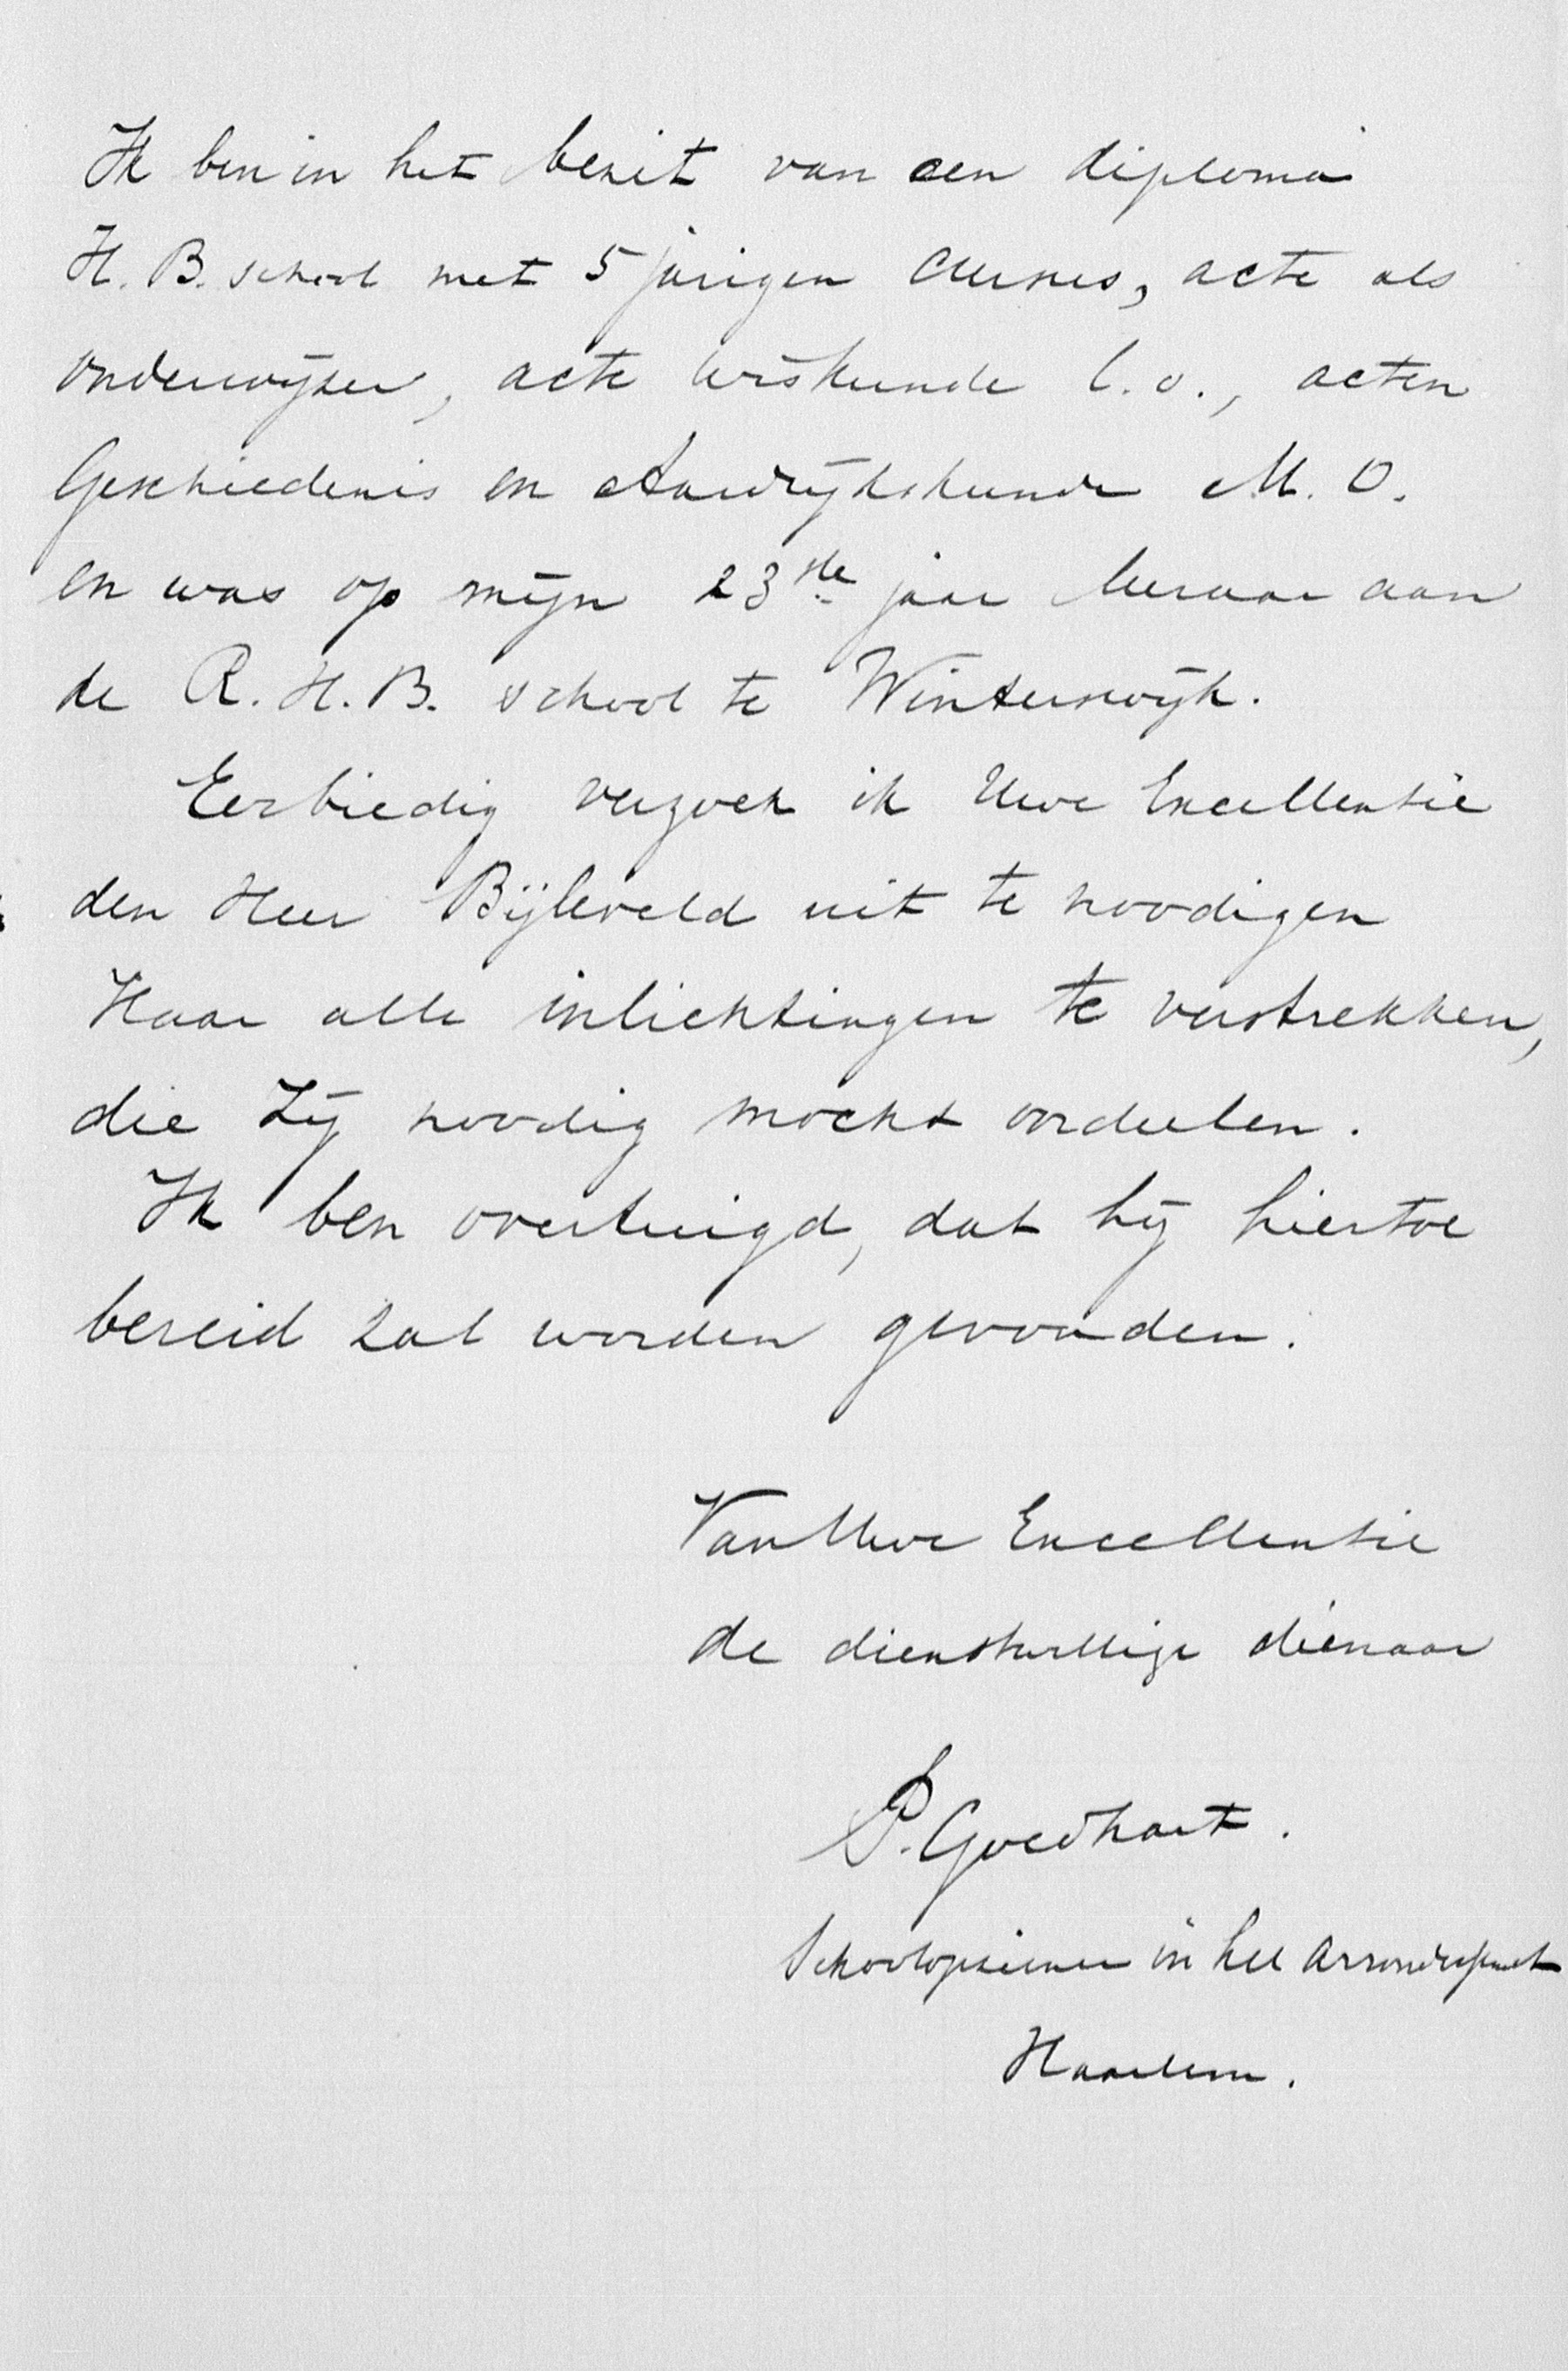 Ik ben in het bezit van een diploma
H. B. school met 5 jarigen cursus, acte als
onderwijzer, acte wiskunde l.o., acten
Geschiedenis en Aardrijkskunde M. O.
en was op mijn 23ste jaar leeraar aan
de R. H. B. school te Winterswijk.
Eerbiedig verzoek ik Uwe Excellentie
den Heer Bijleveld uit te noodigen
Haar alle inlichtingen te verstrekken,
die Zij noodig mocht oordeelen.
Ik ben overtuigd, dat hij hiertoe
bereid zal worden gevonden.
Van Uwe Excellentie
de dienstwillige dienaar
P. Goedhart.
Schoolopziener in het Arrondissement
Haarlem.